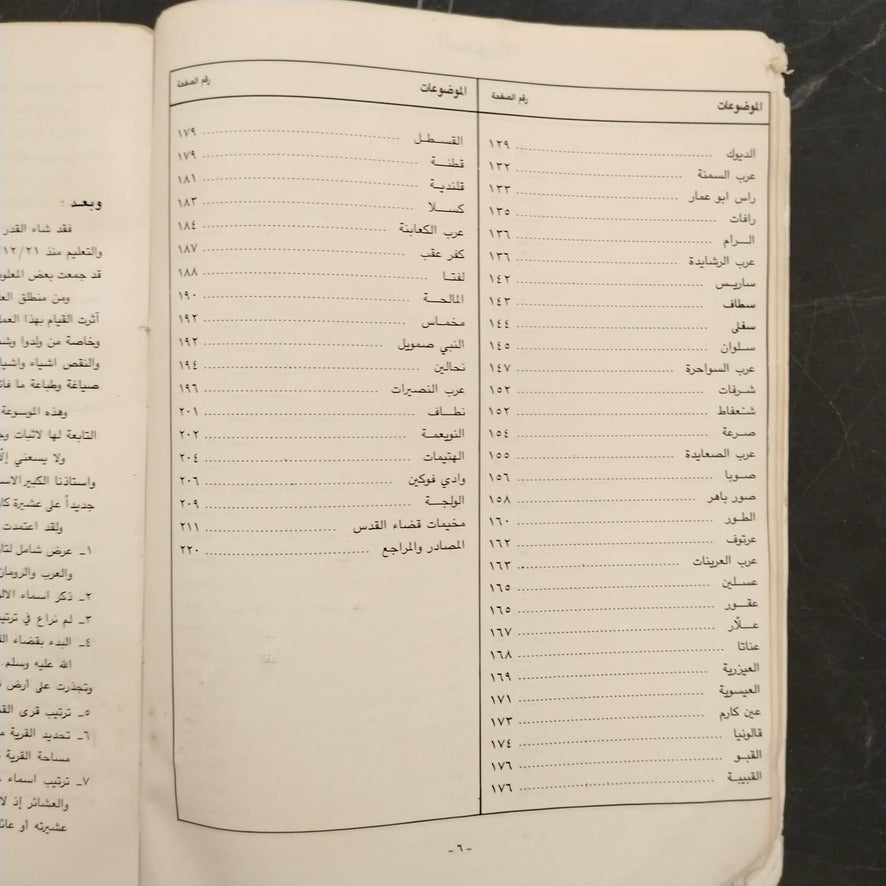 الموضوعات رقم الصفحة
الديوك ١٢٩
عرب السمنة ١٣٢
راس ابو عمار ١٣٣
رافات ١٣٥
الـرام ١٣٦
عرب الرشايدة ١٣٦
ساريـس ١٤٢
سطاف ١٤٣
سفلى ١٤٤
سـلوان ١٤٥
عرب السواحرة ١٤٧
شرفات ١٥٢
شـعفاط ١٥٢
صـرعة ١٥٤
عرب الصعايدة ١٥٥
صـوبا ١٥٦
صور باهر ١٥٨
الطـور ١٦٠
عرتوف ١٦٢
عرب العرينات ١٦٣
عسـلين ١٦٥
عقـور ١٦٥
عـلّار ١٦٧
عناتا ١٦٨
العيزرية ١٦٩
العيسوية ١٧١
عين كارم ١٧٣
قالونيا ١٧٤
القبـو ١٧٦
القبيبـة ١٧٦
الموضوعات رقم الصفحة
القسـطـل ١٧٩
قطنـة ١٧٩
قلنديـة ١٨١
كسـلا ١٨٣
عرب الكعابنة ١٨٤
كفر عقب ١٨٧
لفتـا ١٨٨
المالحـة ١٩٠
مخمـاس ١٩٢
النبي صمويل ١٩٢
نحالين ١٩٤
عرب النصيرات ١٩٦
نطـاف ٢٠١
النويعمـة ٢٠٢
الهتيمات ٢٠٤
وادي فوكين ٢٠٦
الولجـة ٢٠٩
مخيمات قضاء القدس ٢١١
المصادر والمراجع ٢٢٠
- ٦ -
وبعد :
فقد شاء القدر
والتعليم منذ ١٢/٢١/
قد جمعت بعض
ومن منطلق
آثرت القيام بهذا
وخاصة من ولدوا
والنقص اشياء
صياغة وطباعة
وهذه الموسوعة
التابعة لها لاثبات
ولا يسعني
واستاذنا الكبير
جديداً على عشيرة
ولقد اعتمدت
١ـ عرض شامل
والعرب
٢ـ ذكر اسماء
٣ـ لم نراع في
٤ـ البدء بقضاء
الله عليه وسلم
وتجذرت على ارض
٥ـ ترتيب قرى
٦ـ تحديد القرية
مساحة القرية
٧ـ ترتيب اسماء
والعشائر إذ
عشيرته او